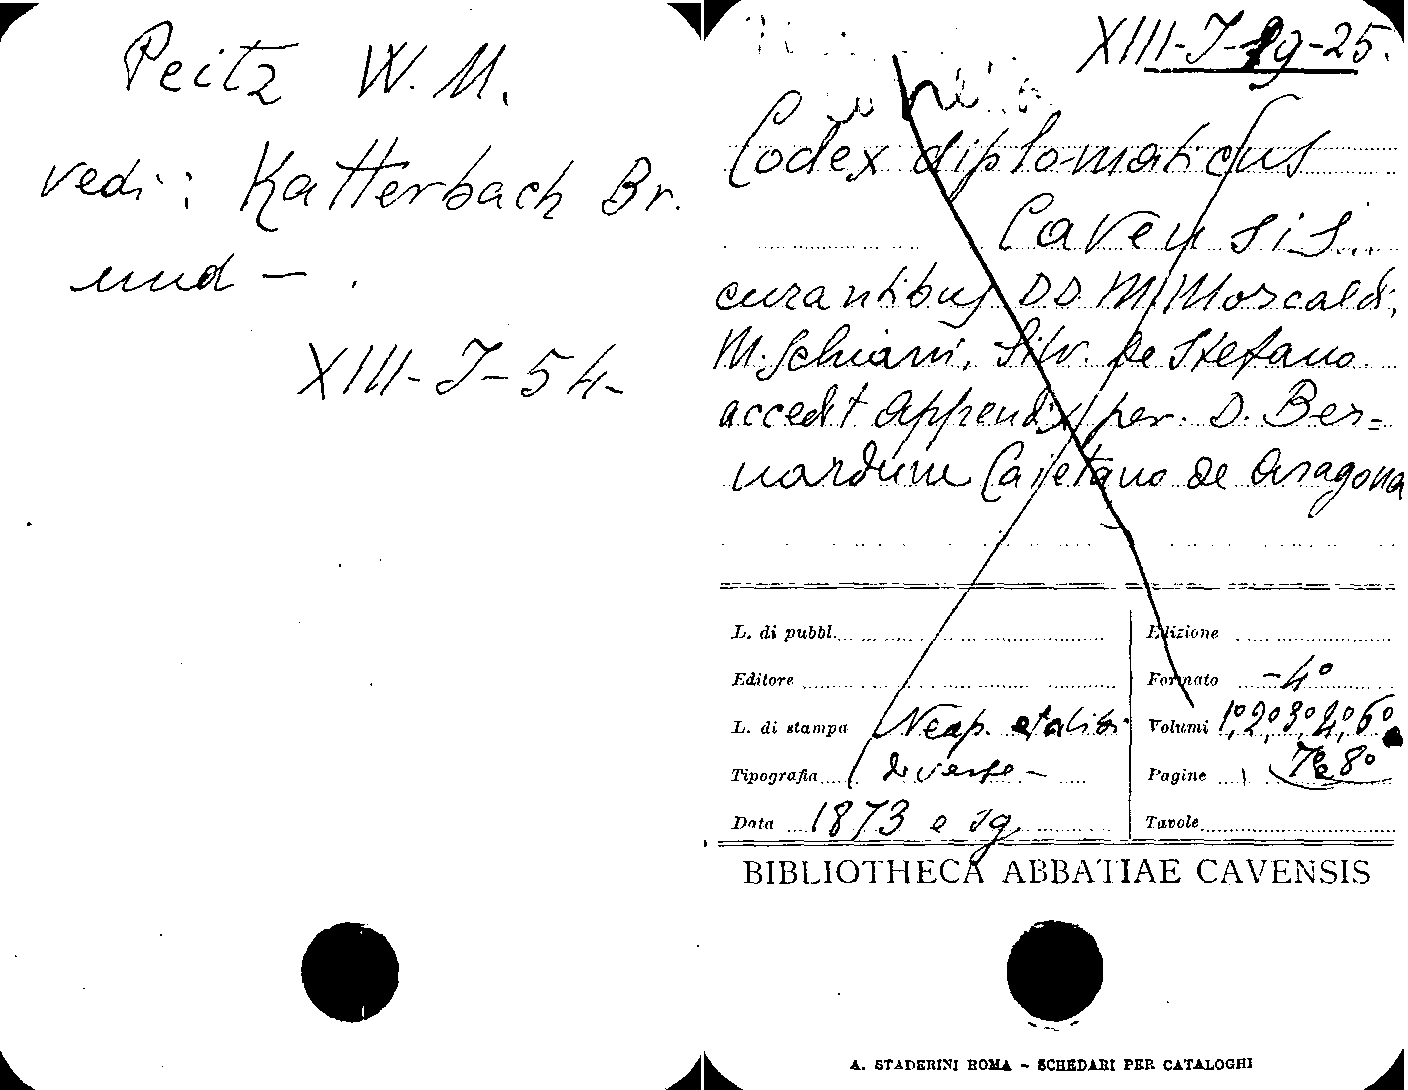 Peitz W. M.
vedi: Katterbach Br.
und — .
XIII-J-54-
XIII-J-19-25.
Codex diplomaticus
Cavensis
curantibus DD M. Morcaldi,
M. Schiani, Silv. De Stefano
accedit appendix per. D. Ber=
nardum Caietano de Aragona
L. di pubbl.
Edizione
Editore
Formato -4°
L. di stampa Neap. et alibi
Volumi 1°, 2°, 3°, 4°, 6°
Tipografia diverse -
Pagine 7° e 8°
Data 1873 e sg
Tavole
BIBLIOTHECA ABBATIAE CAVENSIS
A. STADERINI ROMA - SCHEDARI PER CATALOGHI